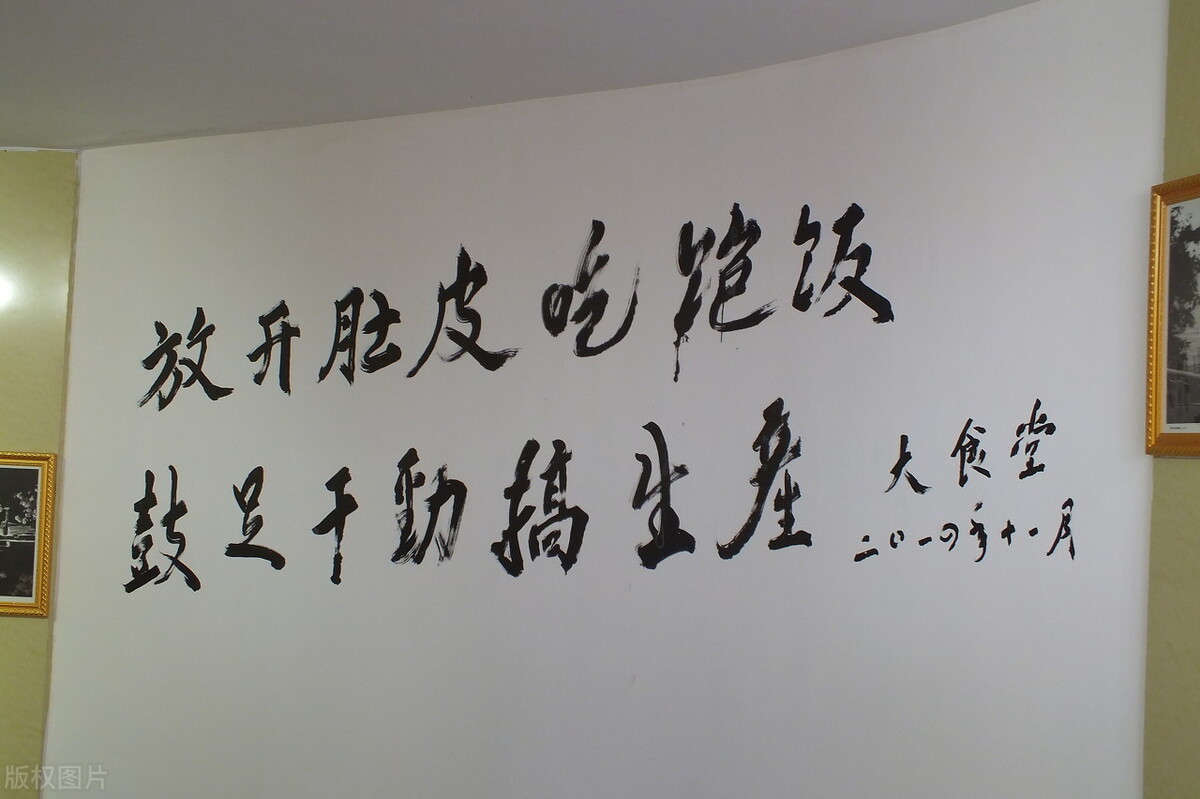 放开肚皮吃饱饭
鼓足干勁搞生産
大食堂
二〇一四年十一月
版权图片